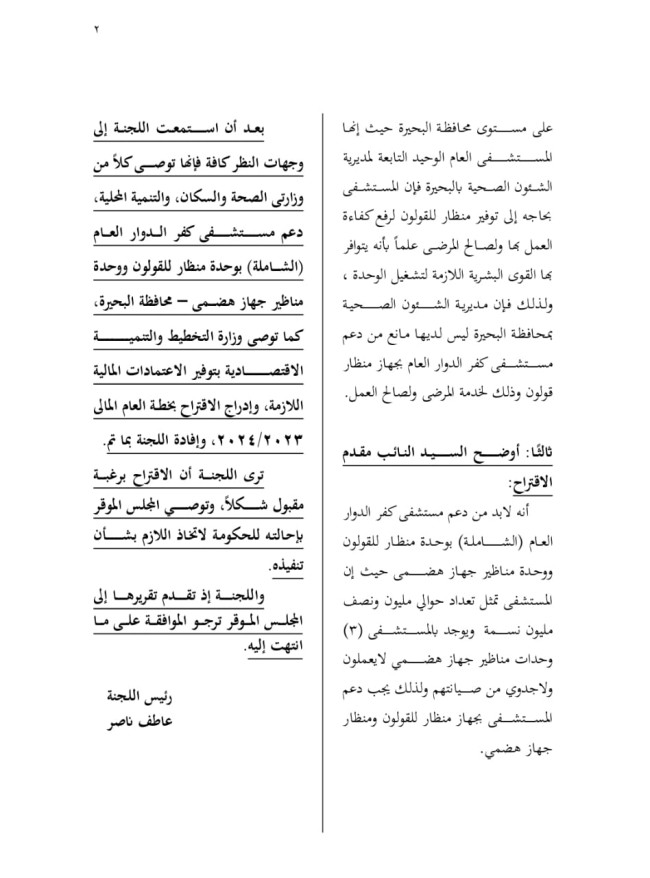 ٢
على مستوى محافظة البحيرة حيث إنها
المستشفى العام الوحيد التابعة لمديرية
الشئون الصحية بالبحيرة فإن المستشفى
بحاجه إلى توفير منظار للقولون لرفع كفاءة
العمل بها ولصالح المرضى علماً بأنه يتوافر
بها القوى البشرية اللازمة لتشغيل الوحدة ،
ولذلك فإن مديرية الشئون الصحية
بمحافظة البحيرة ليس لديها مانع من دعم
مستشفى كفر الدوار العام بجهاز منظار
قولون وذلك لخدمة المرضى ولصالح العمل.
ثالثًا: أوضح السيد النائب مقدم
الاقتراح:
أنه لابد من دعم مستشفى كفر الدوار
العام (الشاملة) بوحدة منظار للقولون
ووحدة مناظير جهاز هضمى حيث إن
المستشفى تمثل تعداد حوالي مليون ونصف
مليون نسمة ويوجد بالمستشفى (٣)
وحدات مناظير جهاز هضمي لايعملون
ولاجدوي من صيانتهم ولذلك يجب دعم
المستشفى بجهاز منظار للقولون ومنظار
جهاز هضمي.
بعد أن استمعت اللجنة إلى
وجهات النظر كافة فإنها توصى كلاً من
وزارتى الصحة والسكان، والتنمية المحلية،
دعم مستشفى كفر الدوار العام
(الشاملة) بوحدة منظار للقولون ووحدة
مناظير جهاز هضمى – محافظة البحيرة،
كما توصى وزارة التخطيط والتنمية
الاقتصادية بتوفير الاعتمادات المالية
اللازمة، وإدراج الاقتراح بخطة العام المالى
٢٠٢٤/٢٠٢٣، وإفادة اللجنة بما تم.
ترى اللجنة أن الاقتراح برغبة
مقبول شكلاً، وتوصي المجلس الموقر
بإحالته للحكومة لاتخاذ اللازم بشأن
تنفيذه.
واللجنة إذ تقدم تقريرها إلى
المجلس الموقر ترجو الموافقة على ما
انتهت إليه.
رئيس اللجنة
عاطف ناصر